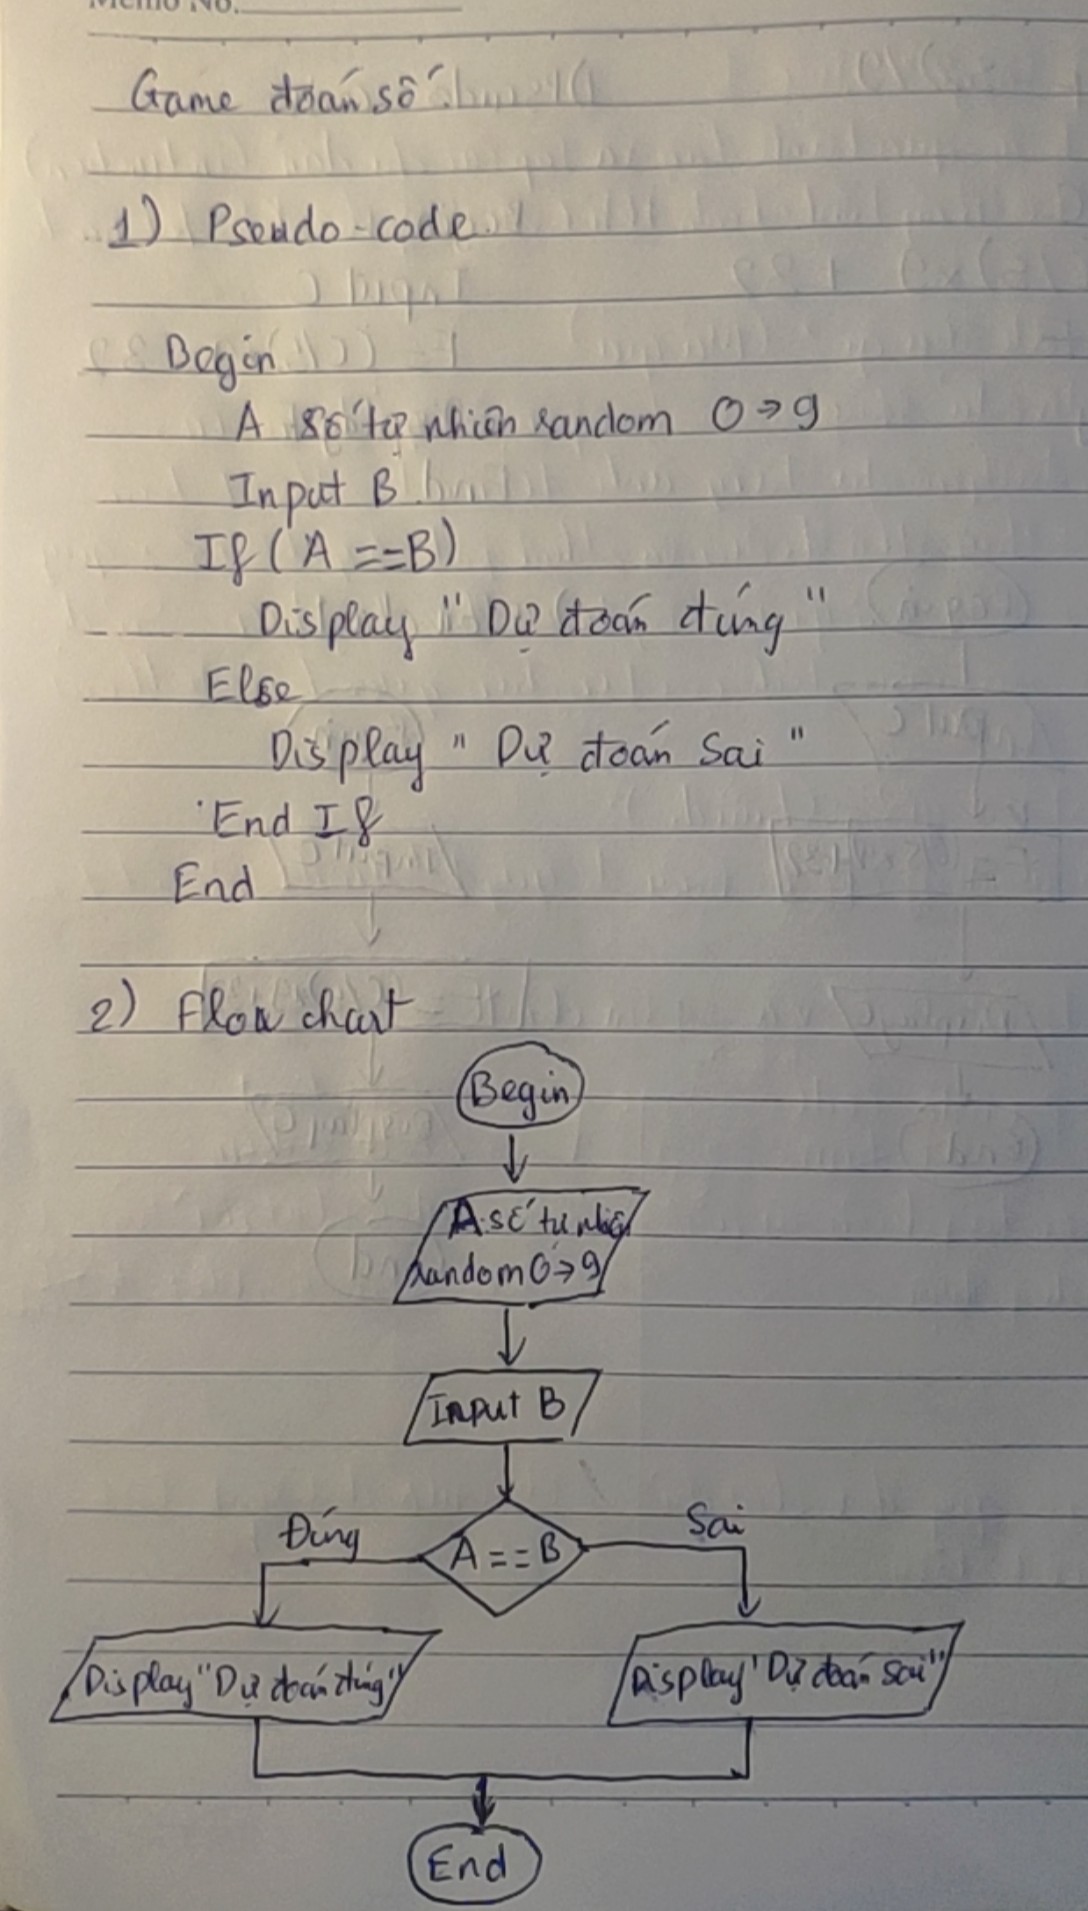 Memo No.
Game đoán số
1) Pseudo-code
Begin
A số tự nhiên random 0 → 9
Input B
If ( A == B)
Display " Dự đoán đúng "
Else
Display " Dự đoán Sai "
End If
End
2) Flow chart
Begin
A số tự nhiên
random 0 → 9
Input B
Đúng
A == B
Sai
Display "Dự đoán đúng"
Display "Dự đoán sai"
End